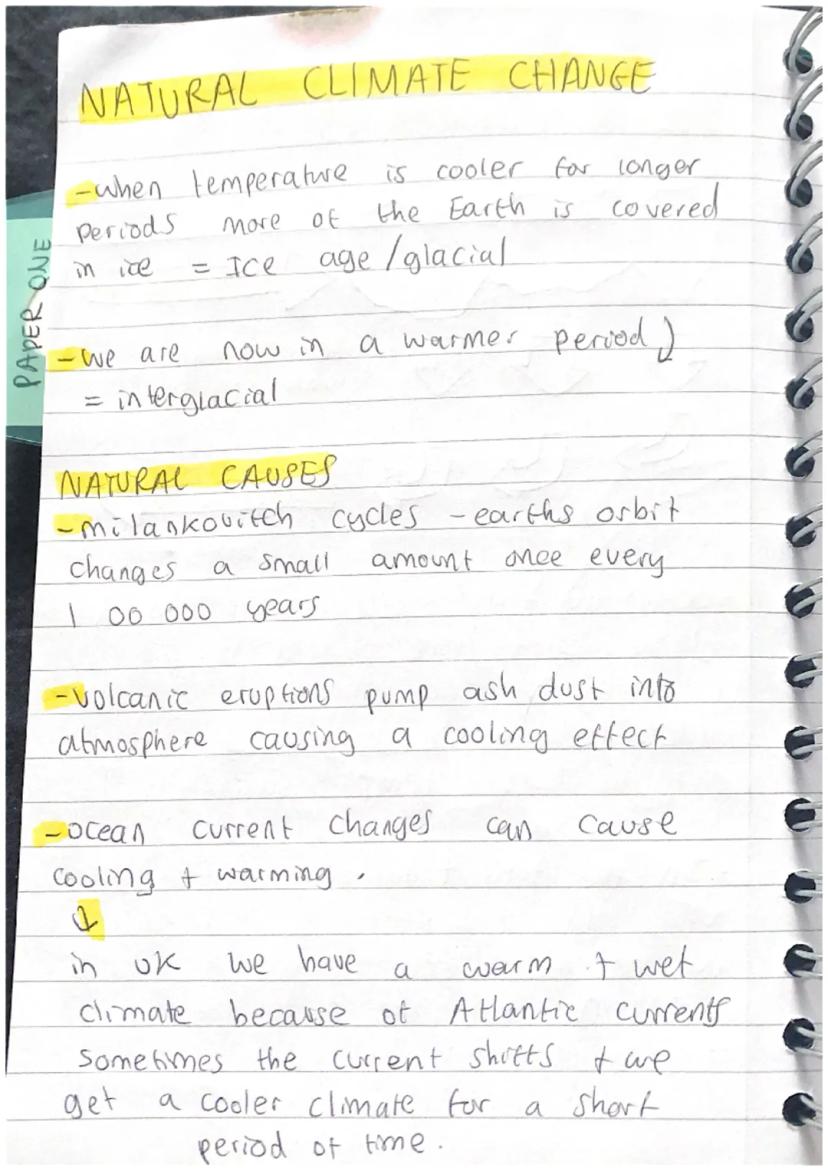 NATURAL CLIMATE CHANGE
-when temperature is cooler for longer
periods more of the Earth is covered
in ice = Ice age/glacial
PAPER ONE
-we are now in a warmer period
= interglacial
NATURAL CAUSES
-milankovitch cycles -earths orbit
changes a small amount once every
1 00 000 years
-volcanic eruptions pump ash dust into
atmosphere causing a cooling effect
-ocean current changes can cause
cooling + warming.
↓
in UK we have a warm + wet
climate because of Atlantic currents
sometimes the current shifts + we
get a cooler climate for a short
period of time.